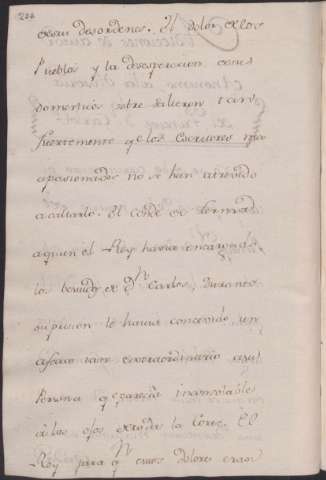 desordenes. El dolor de los
Pueblos y la desesperacion
domesticos sobre salieron tan
fuertemente q.e los Escritores mas
apasionados no se han atrevido
a callarlo. El conde de
a quien el Rey havia encargado
los de D.n Carlos, durante
su prision le havia concevido un
afecto tan extraordinario a su
Persona q.e parecia inconsolable
a los ojos de toda la Corte. El
Rey para q.n estos dolores eran